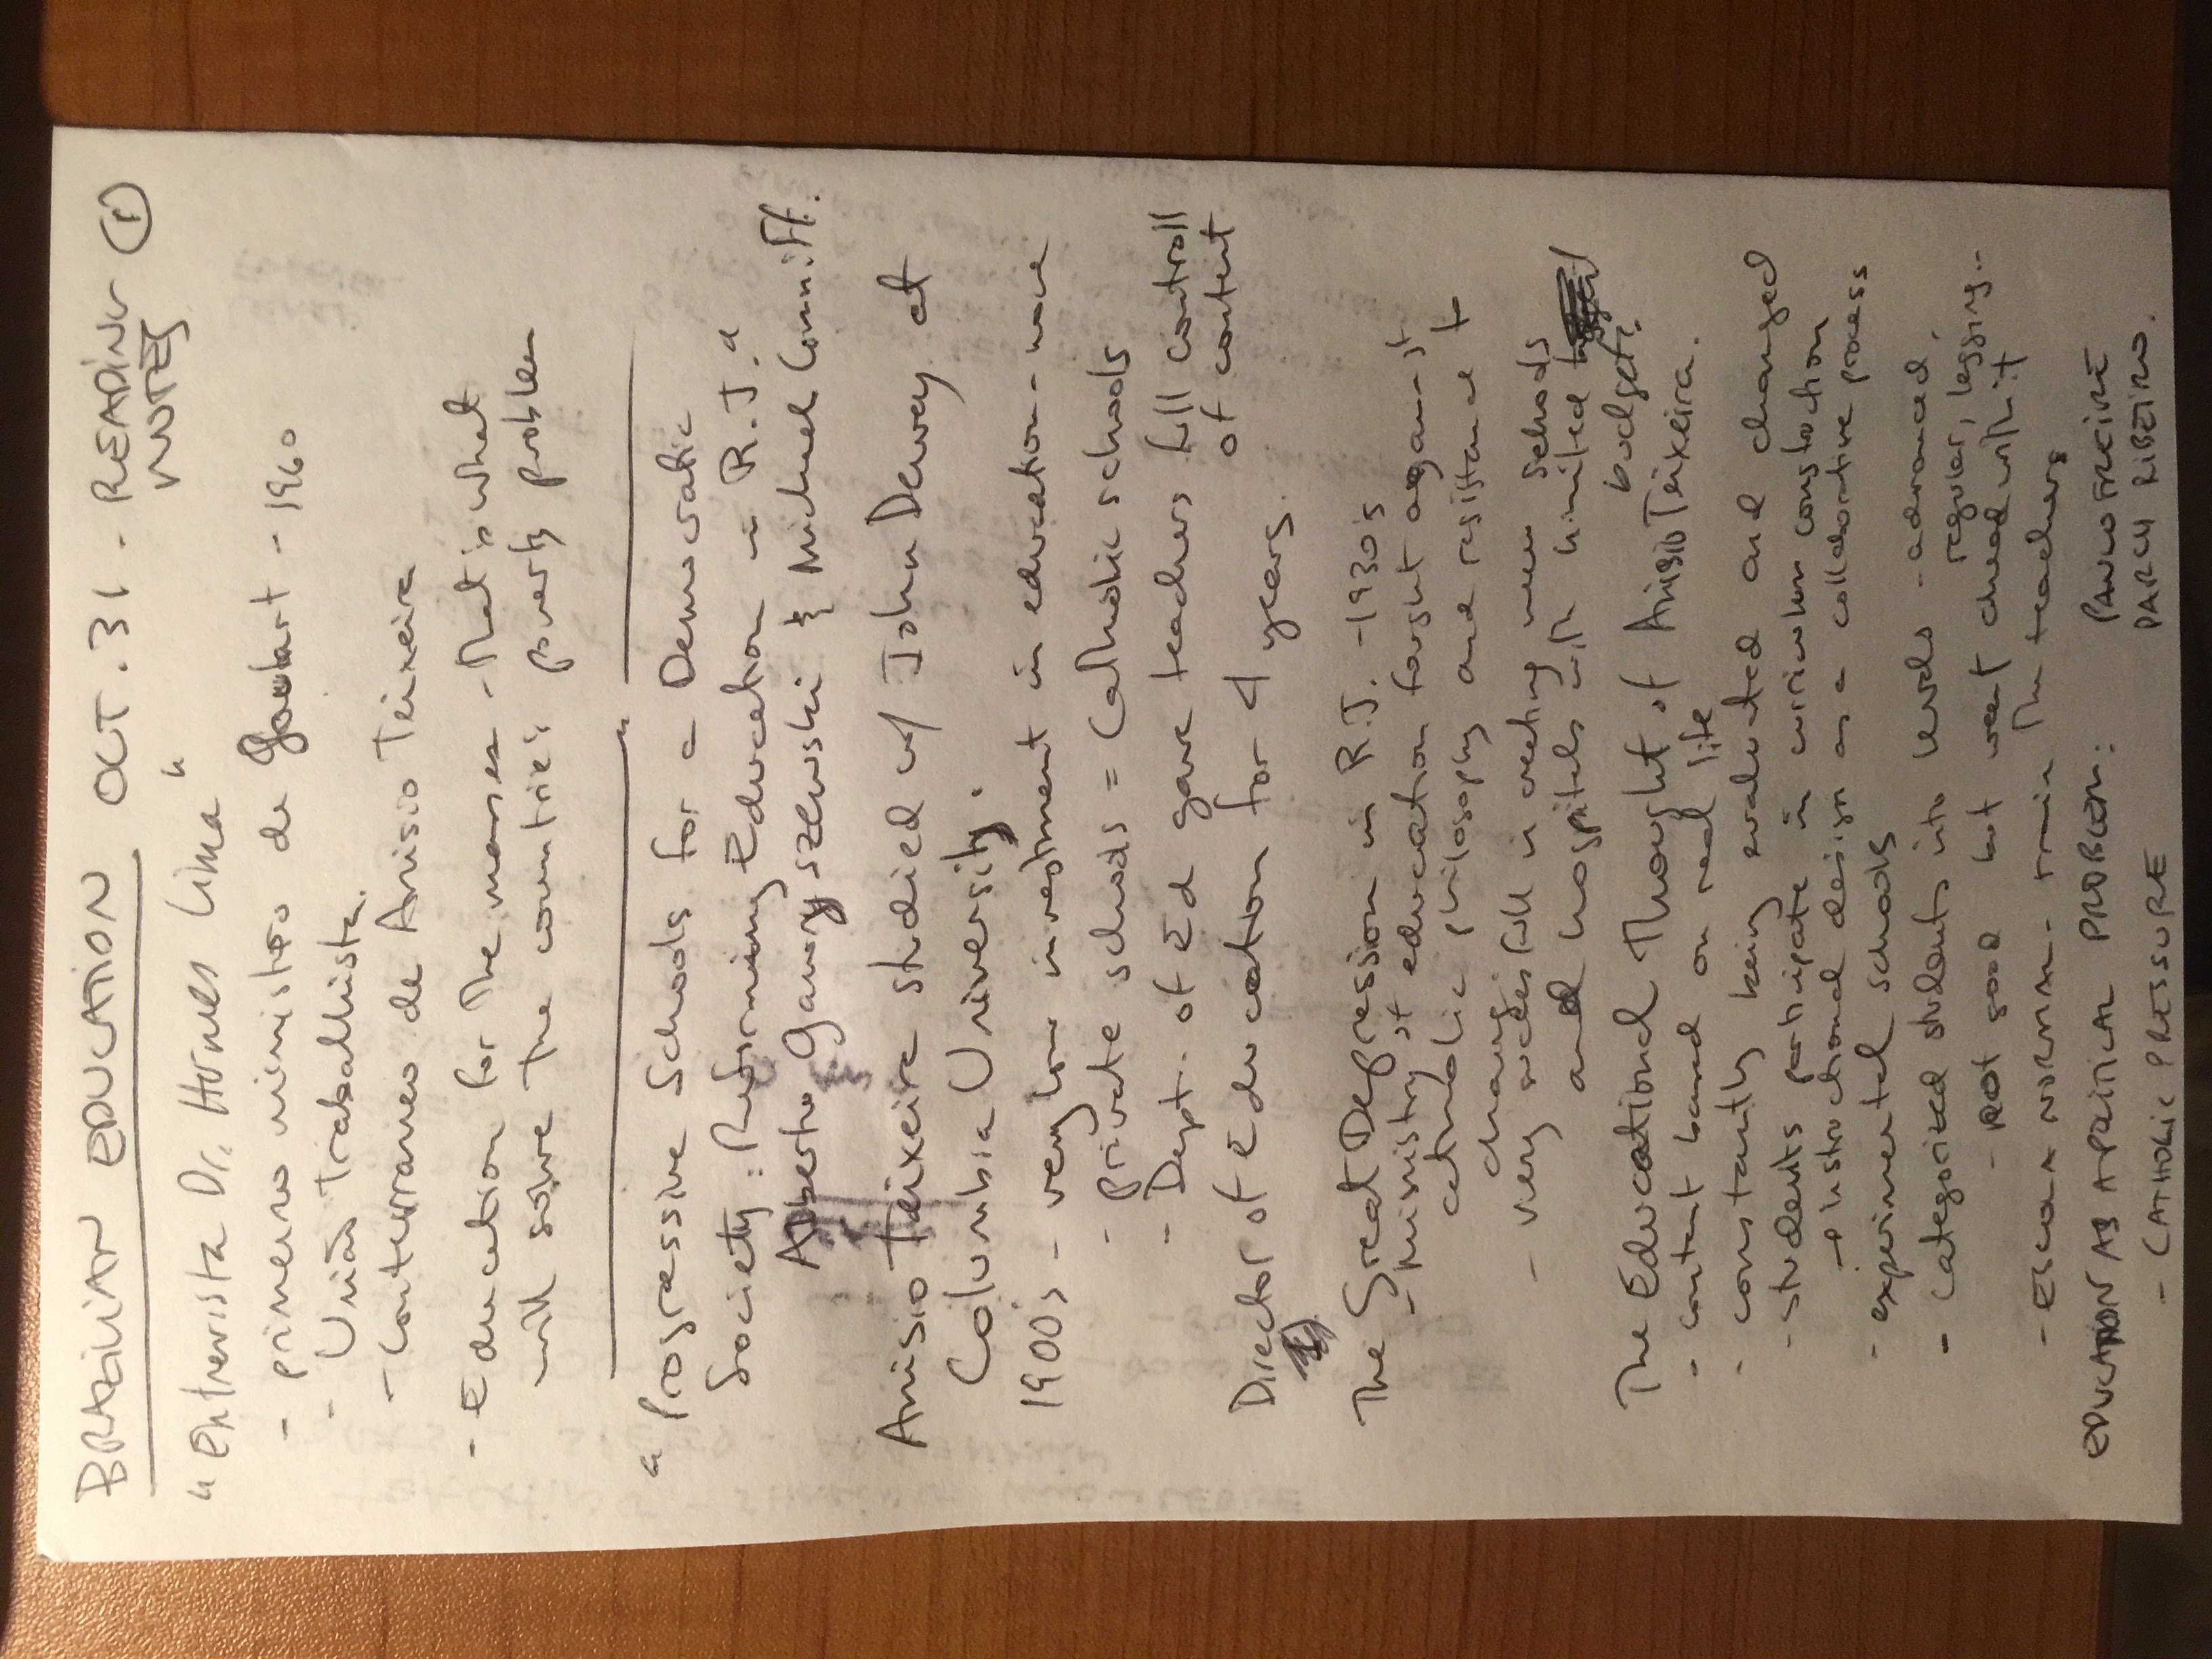 BRAZILIAN EDUCATION OCT. 31 - READING ①
NOTES
"Entrevista Dr. Hermes Lima"
- primero ministro de Goulart - 1960
- União Trabalhista.
- Conterraneo de Anisio Teixeira
- Education for the masses - that is what
will solve the countries poverty problem
"Progressive Schools for a Democratic
Society: Reforming Education in R.J."
Alberto Gawryszewski & Michael Conniff.
Anisio Teixeira studied w/ John Dewey at
Columbia University.
1900s - very low investment in education - none
- private schools = Catholic schools
- Dept. of Ed gave teachers full controll
of content
Director of Education for 4 years.
The Great Depression in R.J. - 1930's
- Ministry of education fought against
catholic philosophy and resistance t
change
- very succesfull in creating new schools
and hospitals with limited
budget.
The Educational Thought of Anisio Teixeira.
- content based on real life
- constantly being evaluated and changed
- students participate in curriculum construction
→ instructional design as a collaborative process
- experimental schools
- categorized students into levels - advanced,
regular, lessing..
- not good but went ahead with it
- ESCOLA NORMAL - train the teachers
EDUCATION AS A POLITICAL PROBLEM: PAULO FREIRE
DARCY RIBEIRO.
- CATHOLIC PRESSURE